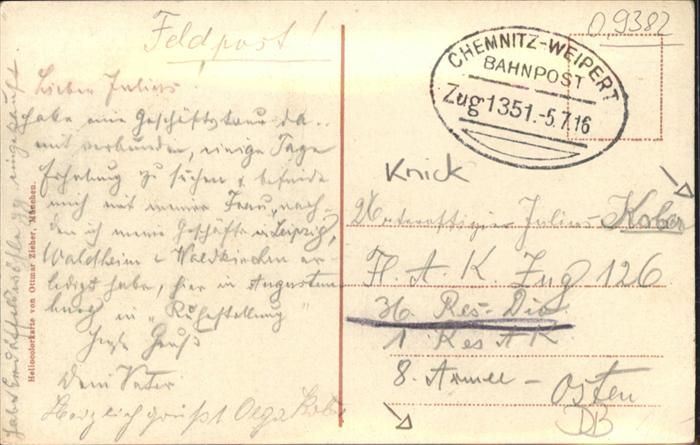 Feldpost!
0,9382
CHEMNITZ-WEIPERT
BAHNPOST
Zug 1351.-5.7.16
Lieber Julius.
habe eine Geschäftstour da-
mit verbunden, einige Tage
Erholung zu suchen & befinde
mich mit meiner Frau, nach-
den ich meine Geschäfte in Leipzig,
Waldheim & Waldkirchen er-
ledigt habe, hier in Augustus-
burg in "Ruhestellung"
Gruß
Dein Vater
Herzlich grüßt Olga Kober
Knick
Unteroffizier Julius Kober
F. A. K. Zug 126
36 Res-Div.
1 Res AK
8. Armee - Osten
DB
Heliocolorkarte von Ottmar Zieher, München.